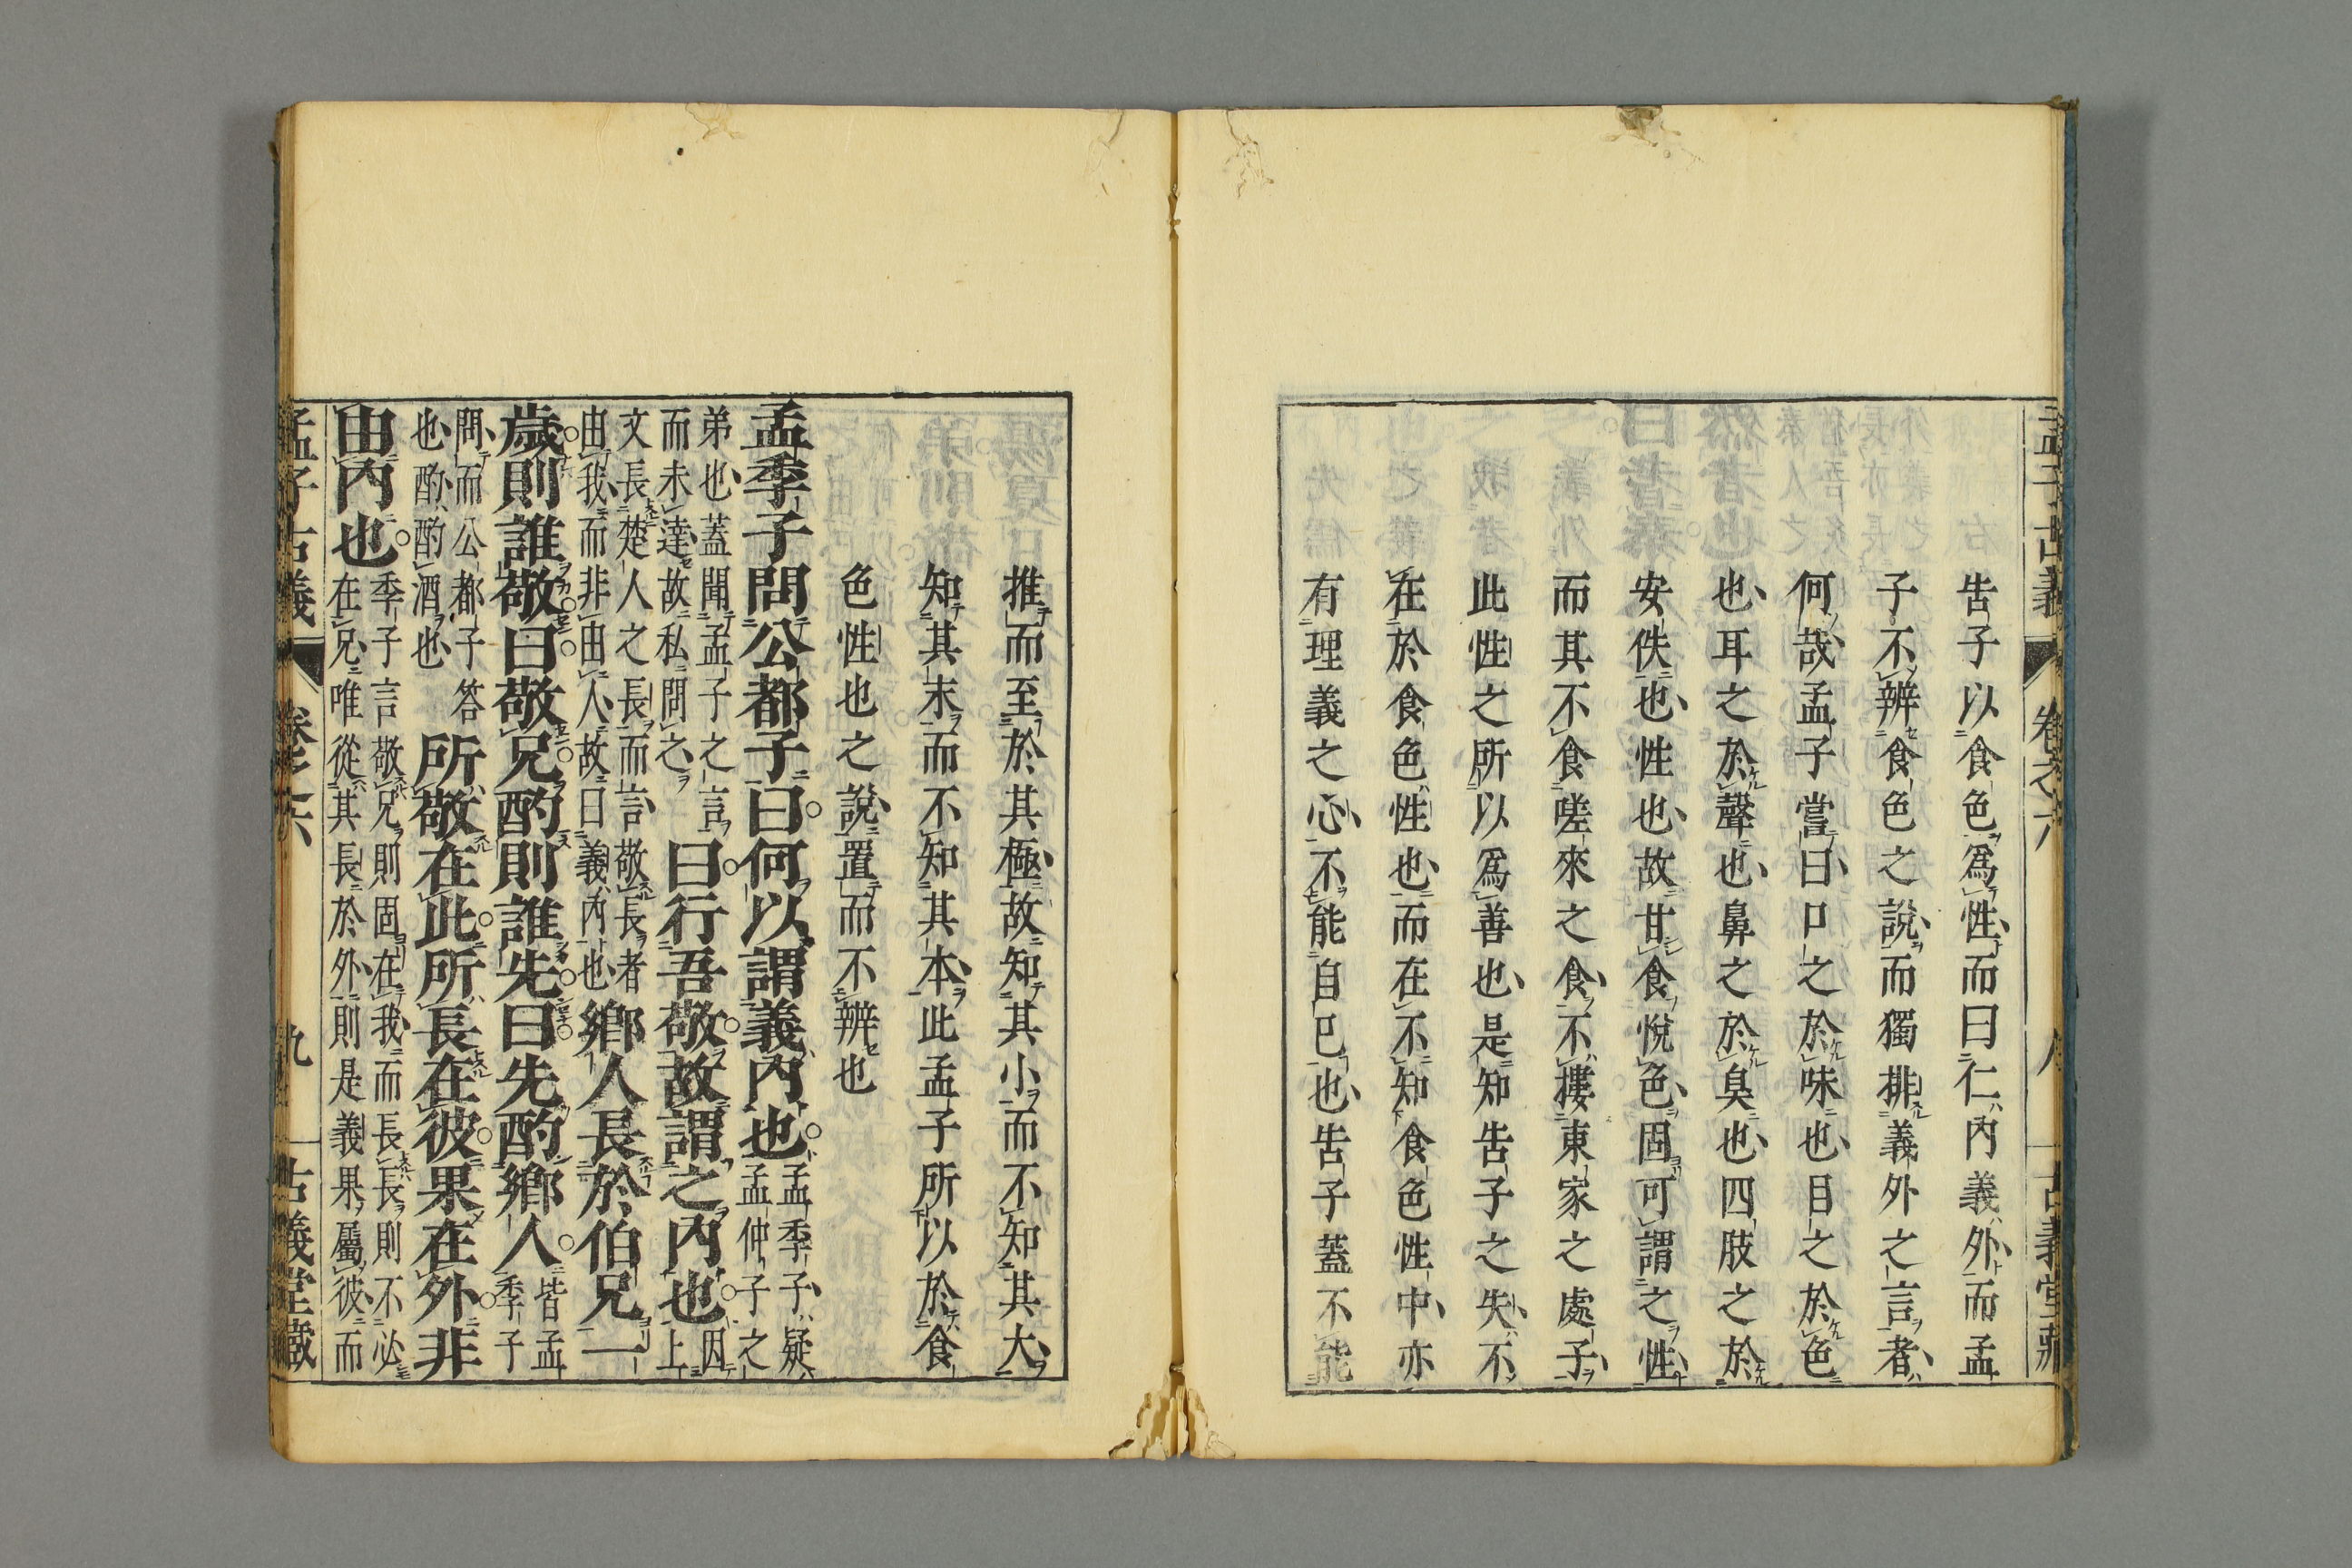 孟子古義 卷之六 八 古義堂藏
告子以食色爲性而曰仁内義外而孟
子不辨食色之說而獨排義外之言者
何哉孟子嘗曰口之於味也目之於色
也耳之於聲也鼻之於臭也四肢之於
安佚也性也故甘食悅色固可謂之性
而其不食嗟來之食不摟東家之處子
此性之所以爲善也是知告子之失不
在於食色性也而在不知食色性中亦
有理義之心不能自已也告子蓋不能
推而至於其極故知其小而不知其大
知其末而不知其本此孟子所以於食
色性也之說置而不辨也
孟季子問公都子曰何以謂義内也
孟季子疑
孟仲子之
弟也蓋聞孟子之言
而未達故私問之
曰行吾敬故謂之内也
因
上
文長楚人之長而言敬長者
由我而非由人故曰義内也
鄉人長於伯兄一
歲則誰敬曰敬兄酌則誰先曰先酌鄉人
皆孟
季子
問而公都子答
也酌酌酒也
所敬在此所長在彼果在外非
由内也
季子言敬兄則固在我而長長則不必
在兄唯從其長於外則是義果屬彼而
孟子古義 卷之六 九 古義堂藏